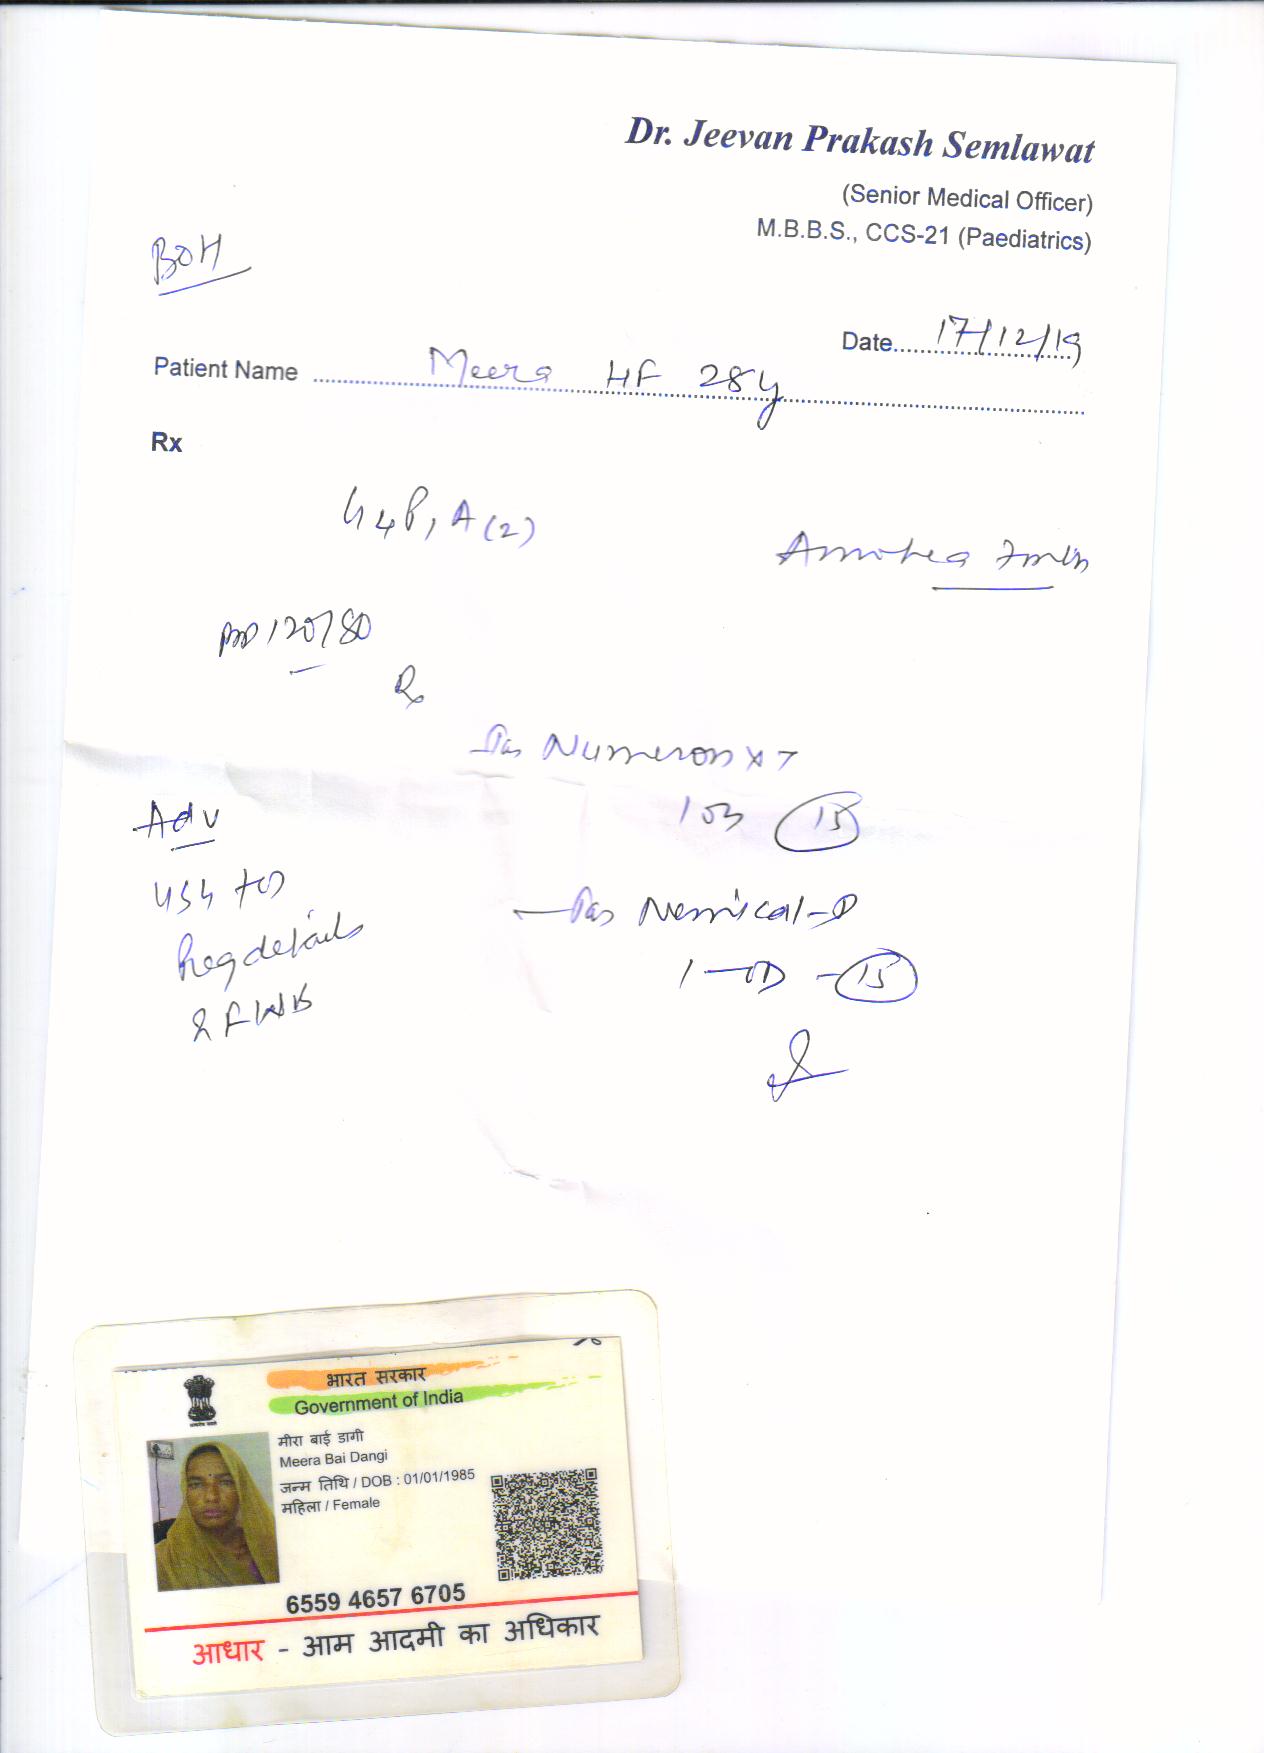 Dr. Jeevan Prakash Semlawat
(Senior Medical Officer)
M.B.B.S., CCS-21 (Paediatrics)
BOH
Date 17/12/19
Patient Name Meera HF 28y
Rx
G4P1A(2)
BP 120/80
Rx
Numeron
Adv
USG
1 OD 15
Regdetails
& FWB
1 OD 15
भारत सरकार
Government of India
मीरा बाई डागी
Meera Bai Dangi
जन्म तिथि / DOB : 01/01/1985
महिला / Female
6559 4657 6705
आधार - आम आदमी का अधिकार